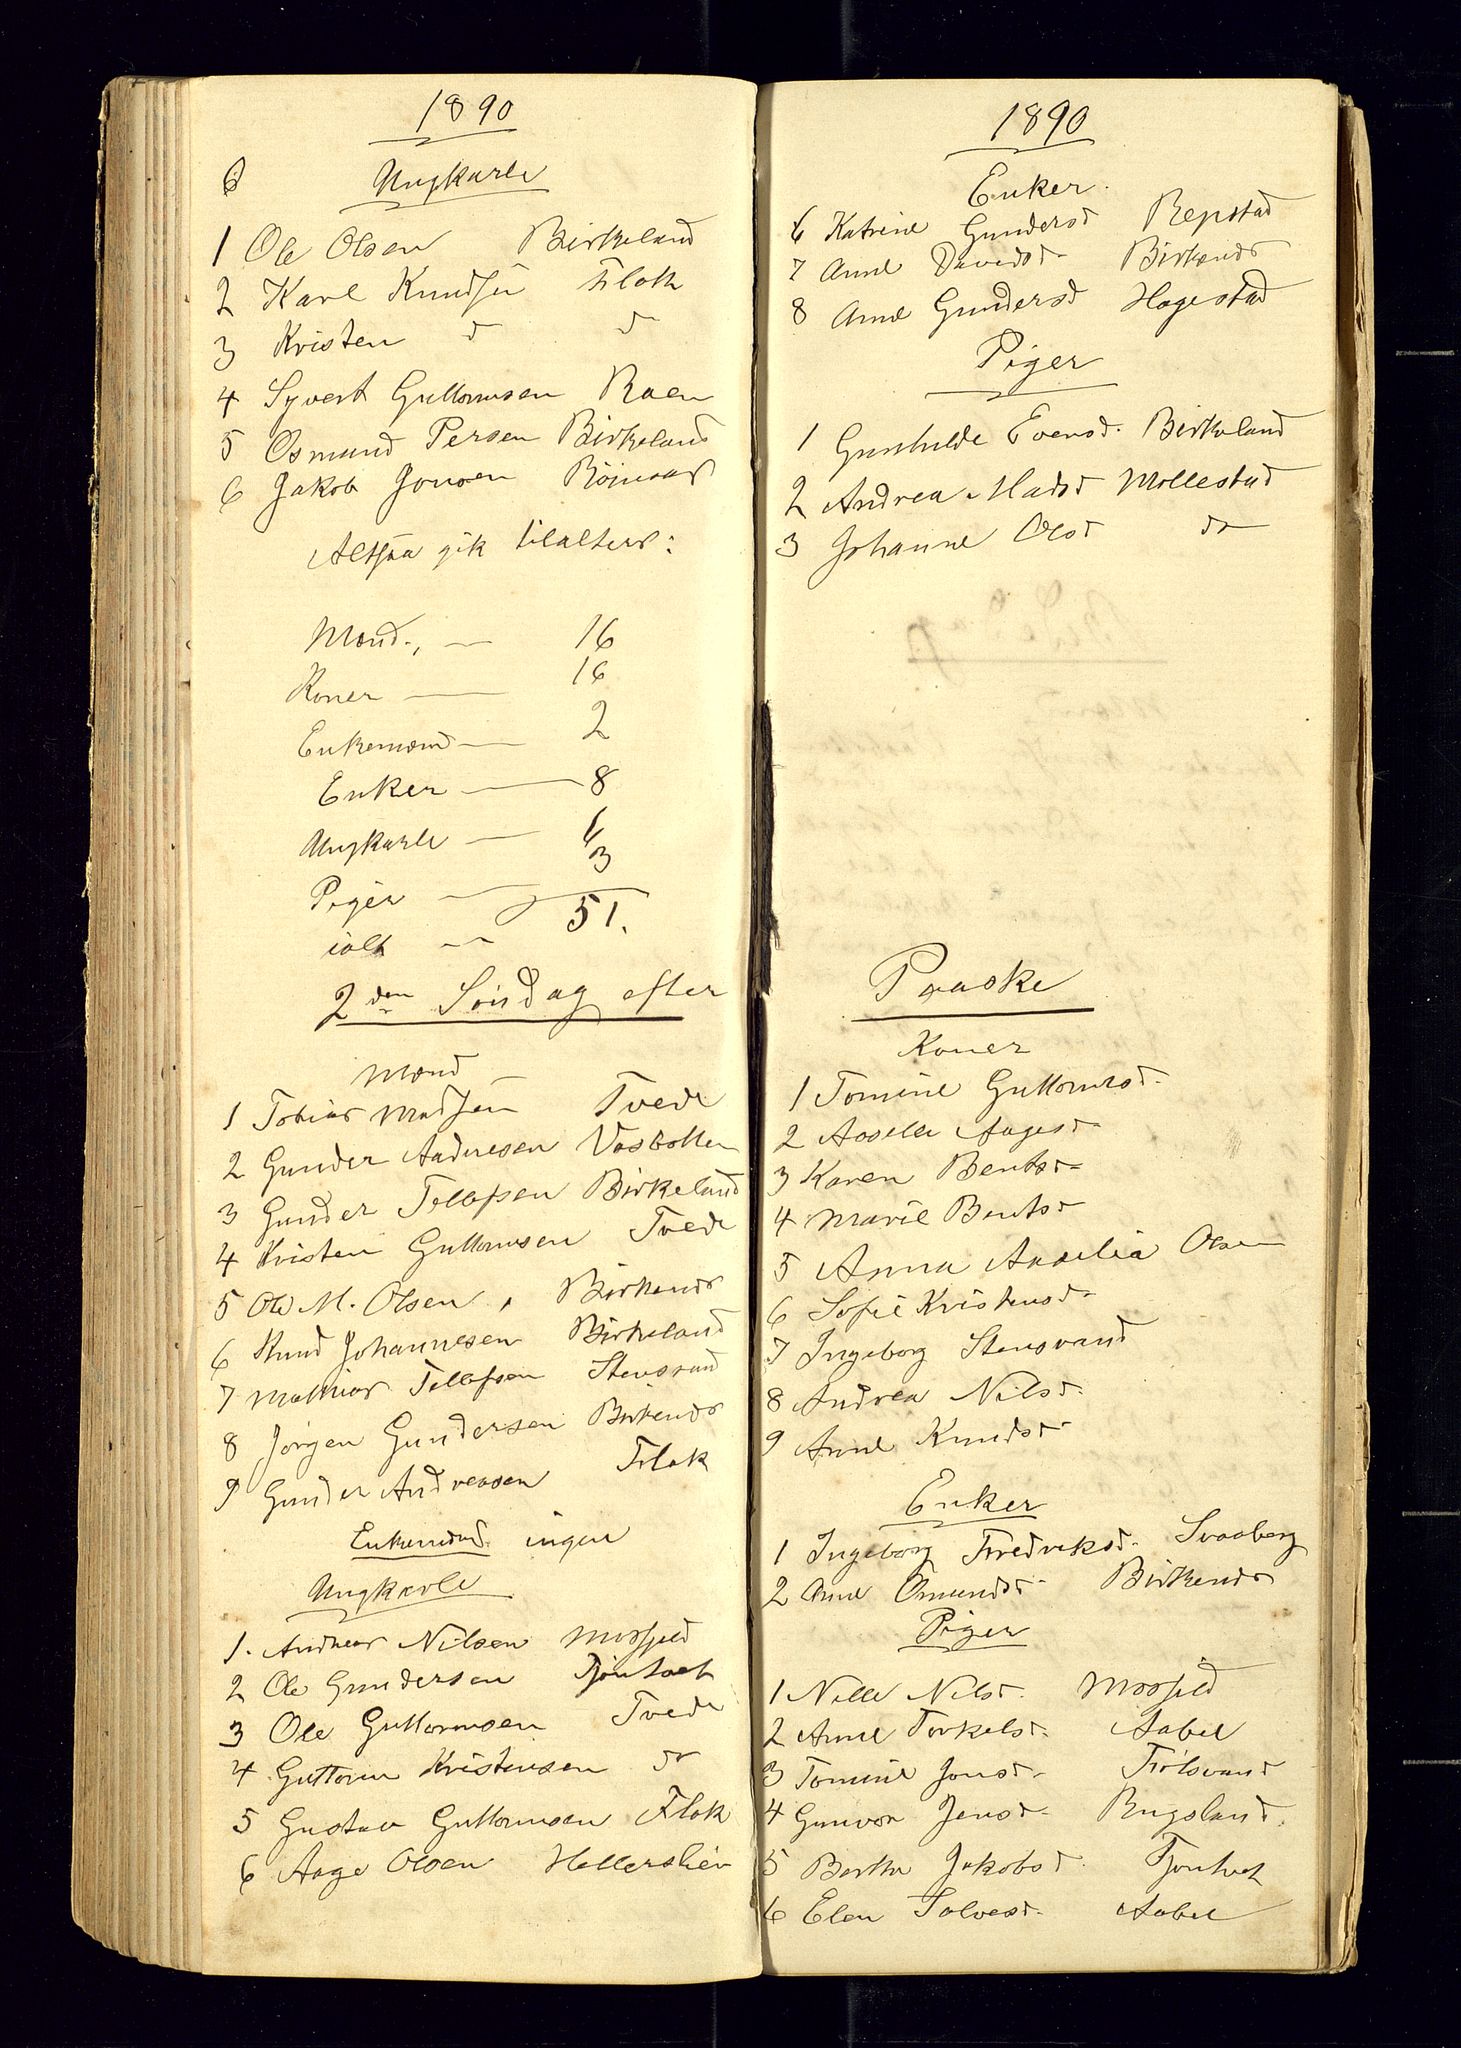 1890
6 Ungkarle
1 Ole Olsen Birkeland
2 Karl Knudsen Flak
3 Kristen d d
4 Syvert Guttormsen Roen
5 Osmund Persen Birkeland
6 Jakob Jonsen
Altsaa gik tilalters:
Mænd., — 16
Koner — 16
Enkemænd — 2
Enker — 8
Ungkarle — 6
Piger — 3
ialt — 51.
2den Søndag efter
Mænd —
1 Tobias Madsen Tvede
2 Gunder Andresen Vasbotten
3 Gunder Tellefsen Birkeland
4 Kristen Guttormsen Tvede
5 Ole M. Olsen, Birkends
6 Knud Johannesen Birkeland
7 Mathias Tellefsen Stensvand
8 Jørgen Gundersen Birkends
9 Gunder Andreasen Flak
Enkemænd ingen
Ungkarle
1. Andreas Nilsen Mosfjeld
2 Ole Gundersen Tjöntvet
3 Ole Guttormsen Tvede
4 Guttorm Kristensen do
5 Gustav Guttormsen Flak
6 Aage Olsen Hellersliev
1890
Enker.
6 Katrine Gundersd Repstad
7 Anne Davidsd Birkends
8 Anne Gundersd Hagestad
Piger
1 Gunhilde Evensd. Birkeland
2 Andrea Madsd Mollestad
3 Johanne Olsd do
Paaske
Koner
1 Tomine Guttormsd.
2 Aasille Aagesd
3 Karen Bentsd
4 Marie Bentsd
5 Anna Aaselia Olsen
6 Sofie Kristensd
7 Ingeborg Stensvand
8 Andrea Nilsd.
9 Anne Knudsd
Enker
1 Ingeborg Fredriksd. Svaaberg
2 Anne Omundsd Birkends
Piger
1 Nille Nilsd. Mosfjeld
2 Anne Torkelsd. Aabel
3 Tomine Jonsd.
4 Gunvor Jensd Rugsland.
5 Bertha Jakobsd Tjöntvet
6 Elen Salvesd. Aabel